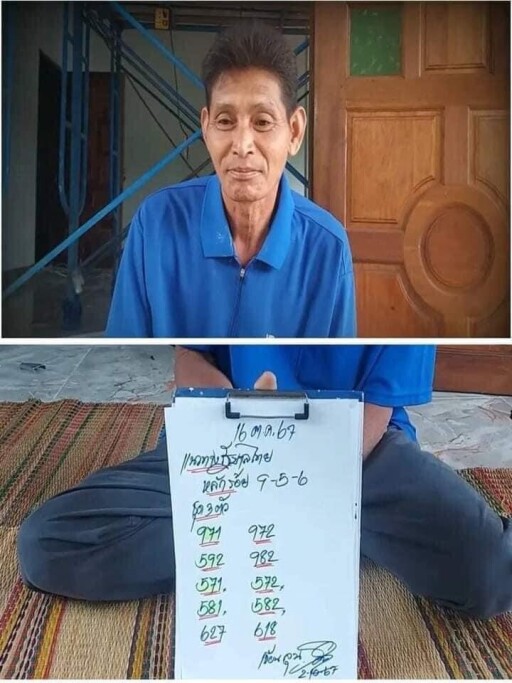 16 ต.ค.67
แนวทางรัฐบาลไทย
หลักร้อย 9-5-6
ชุด 3 ตัว
971 972
592 982
571. 572.
581. 582.
627 618